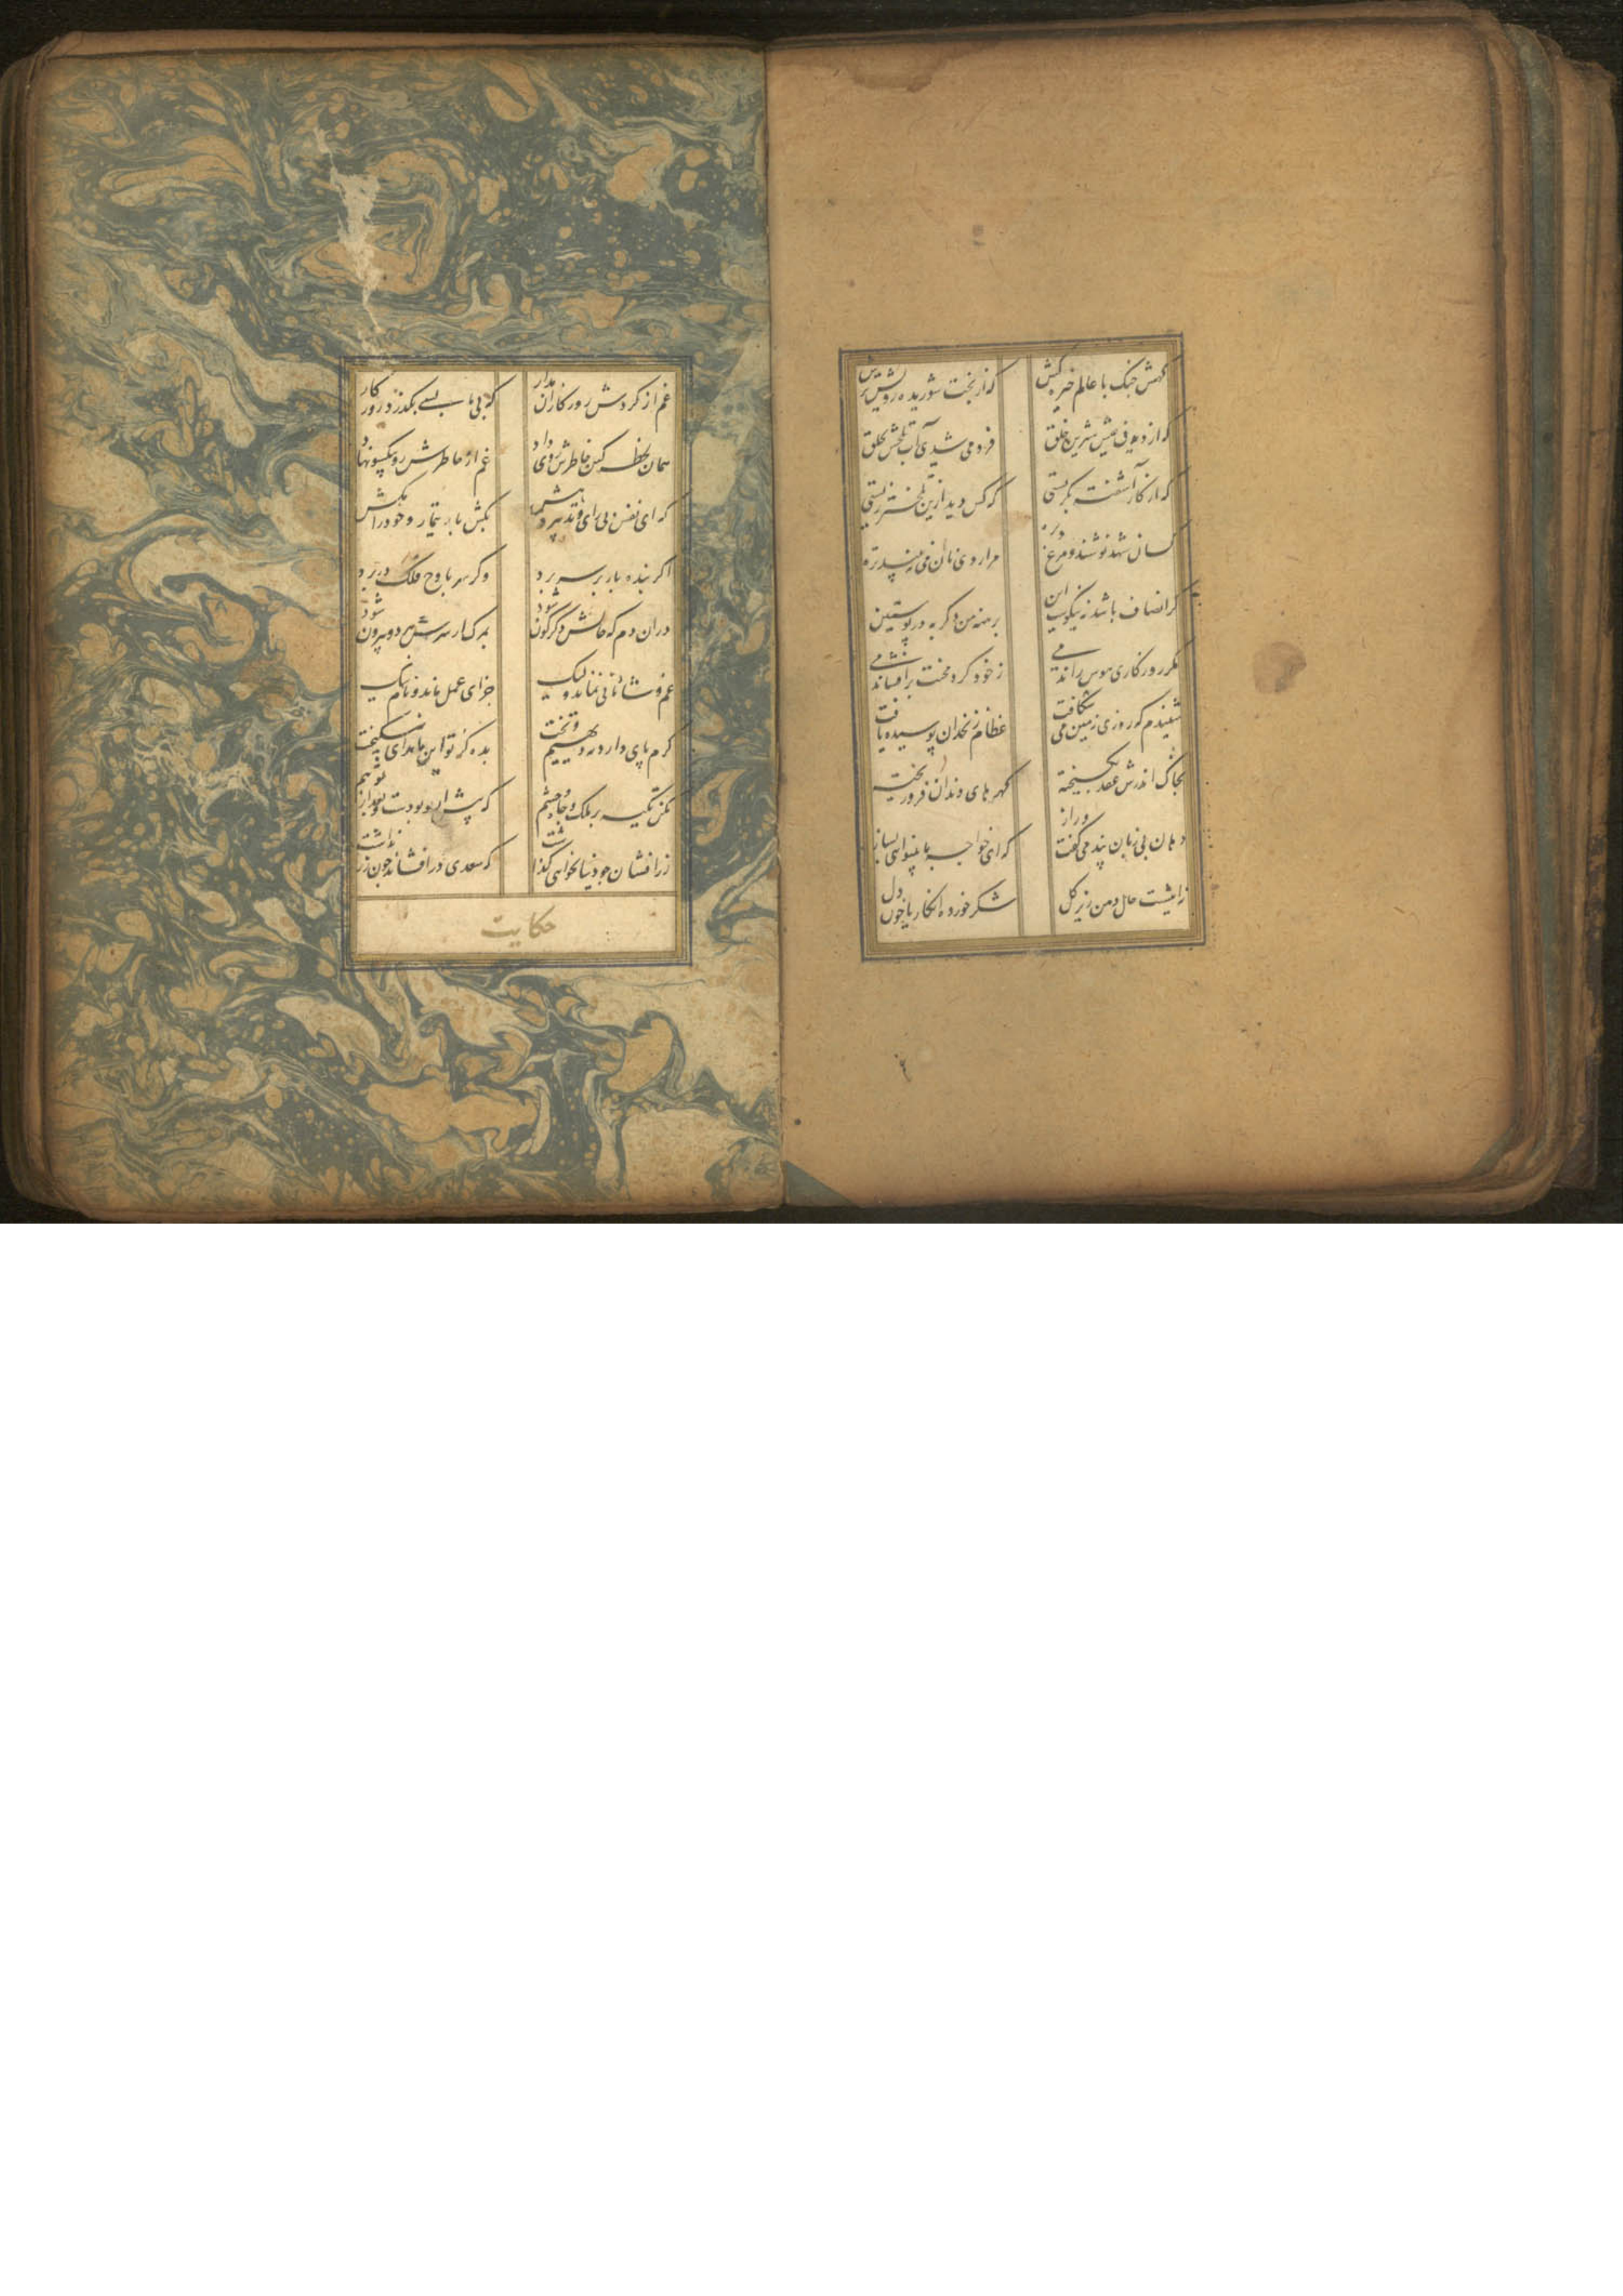 کهش جنک با عالم خیره کش که از بخت شوریده رویش ترش
که از دیدن عیش شیرین خلق فرو می شدی آب تلخش بحلق
که از کار آشفته بکریستی که کس دید ازین تلختر زیستی
کسان شهد نوشند و مرغ و بره مرا روی نان می نبیند تره
کر انصاف باشد نه نیکوست این برهنه من و کربه در پوستین
مکر روزکاری هوس راندمی ز خود کرد محنت برافشاندمی
شنیدم که روزی زمین می شکافت عظام زنخدان پوسیده یافت
بخاک اندرش عقد بکسیخته کهرهای دندان فرو ریخته
دهان بی زبان پند می کفت و راز که ای خواجه با بینوایی بساز
نه اینست حال دهن زیر کل شکر خورده انکار یا خون دل
غم از کردش روزکاران مدار که بی ما بسی بکذرد روزکار
همان لحظه کین خاطرش روی داد غم از خاطرش رو بیکسو نهاد
که ای نفس بی رای و تدبیر و هش بکش بار تیمار و خود را مکش
اکر بنده بار بر سر برد وکر سر باوج فلک در برد
دران دم که حالش دکرکون شود بمرک از سرش هر دو بیرون شود
غم و شادمانی نماند ولیک جزای عمل ماند و نام نیک
کرم پای دارد نه دیهیم و تخت بده کز تو این ماند ای نیکبخت
مکن تکیه بر ملک و جاه و حشم که پیش از تو بودست و بعد از تو هم
زر افشان چو دنیا بخواهی کذاشت که سعدی در افشاند چون زر نداشت
حکایت